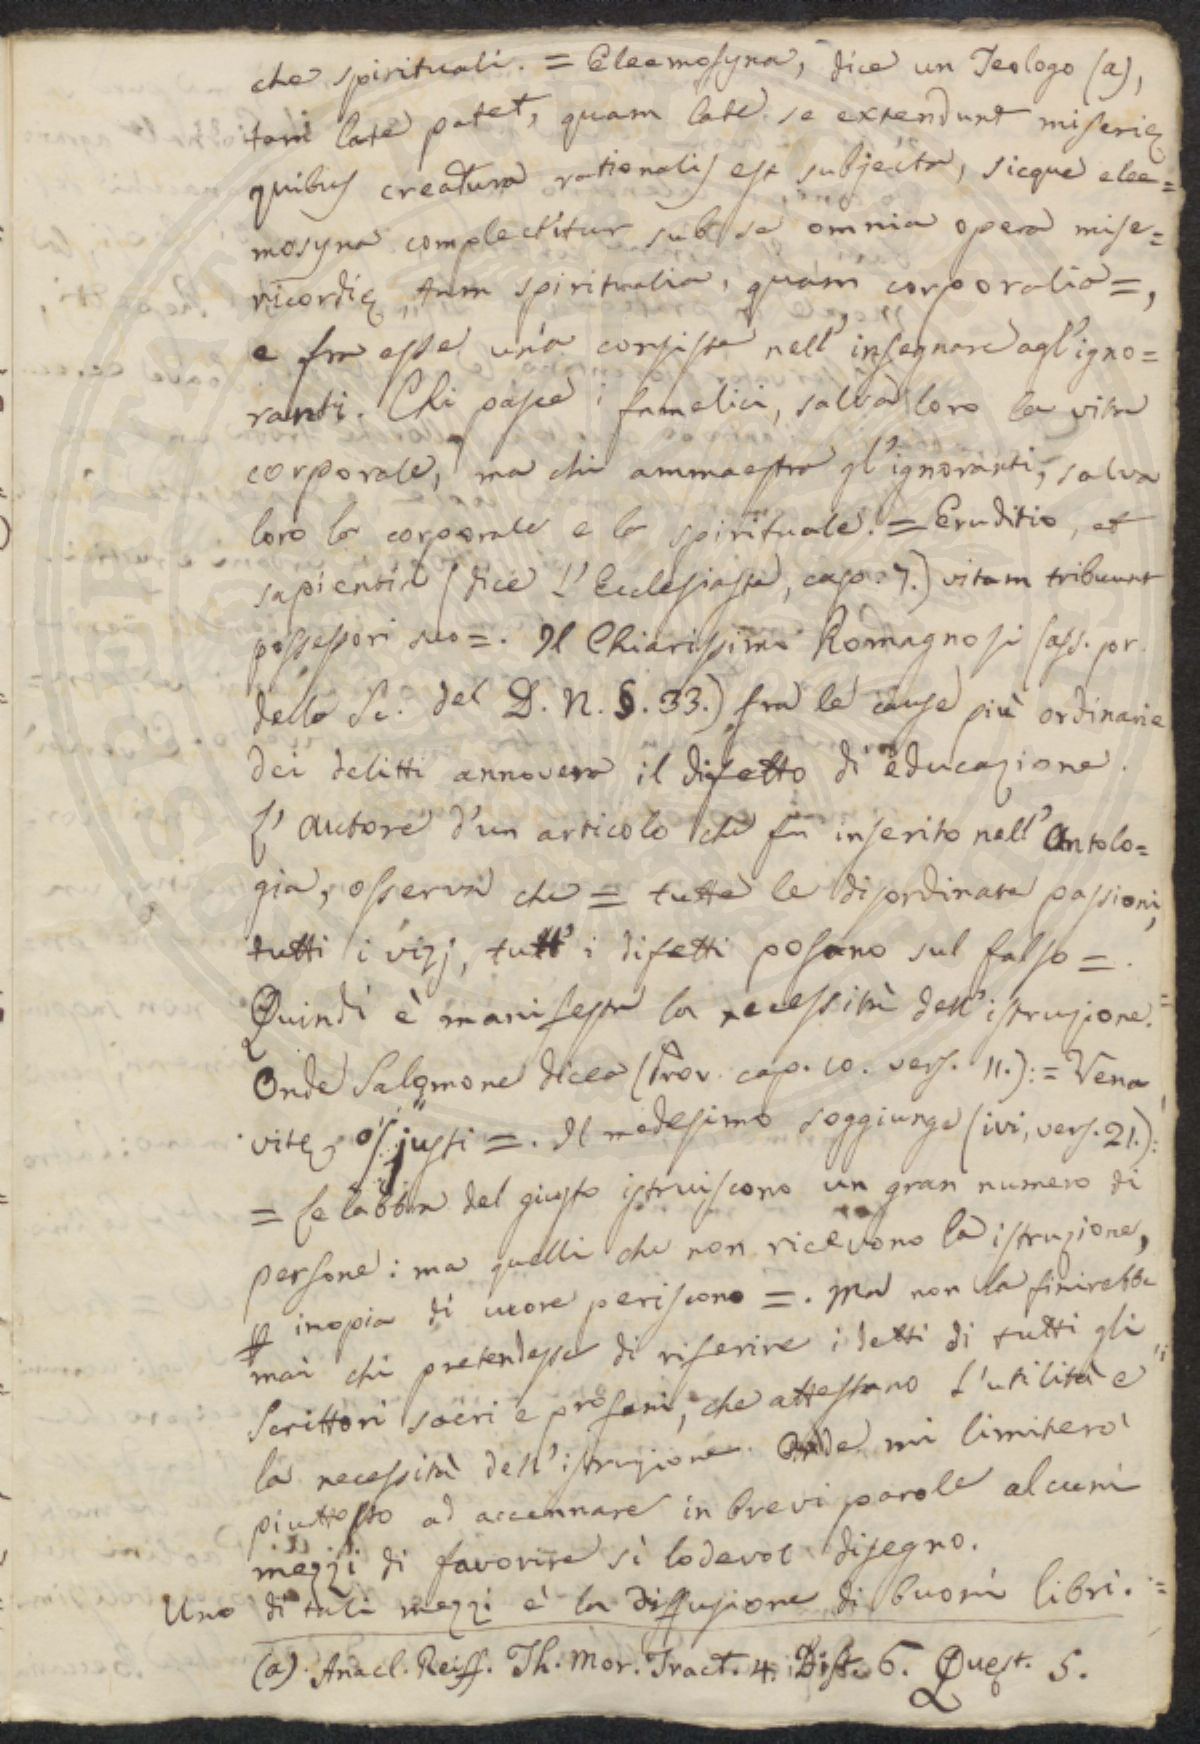 che spirituali. = Eleemosyna, dice un Teologo (a),
tam late patet, quam late se extendunt miserię
quibus creatura rationalis est subjecta, sicque elee=
mosyna complectitur sub se omnia opera mise=
ricordię tum spiritualia, quam corporalia =,
e fra esse una consiste nell'insegnare agl'igno=
ranti. Chi pasce i famelici, salva loro la vita
corporale, ma chi ammaestra gl'ignoranti, salva
loro la corporale e la spirituale. = Eruditio, et
sapientia (dice l'Ecclesiaste, cap. 7.) vitam tribuunt
possessori suo =. Il Chiarissimo Romagnosi (ass. pr.
dello St. del D. N. §. 33.) fra le cause più ordinarie
dei delitti annovera il difetto di educazione.
L'autore d'un articolo che fu inserito nell'Antolo=
gia, osserva che = tutte le disordinate passioni,
tutti i vizj, tutt'i difetti posano sul falso =.
Quindi è manifesta la necessità dell'istruzione.
Onde Salomone dicea (Prov. cap. 10. vers. 11.): = Vena
vitę os justi =. Il medesimo soggiunge (ivi, vers. 21.):
= Le labbra del giusto istruiscono un gran numero di
persone: ma quelli che non ricevono la istruzione,
p inopia di cuore periscono =. Ma non la finirebbe
mai chi pretendesse di riferire i detti di tutti gli
Scrittori sacri e profani, che attestano l'utilità e
la necessità dell'istruzione. Onde mi limiterò
piuttosto ad accennare in brevi parole alcuni
mezzi di favorire sì lodevol disegno.
Uno di tali mezzi è la diffusione di buoni libri.
(a) Anacl. Reiff. Th. Mor. Tract. 4. Dist. 6. Quęst. 5.